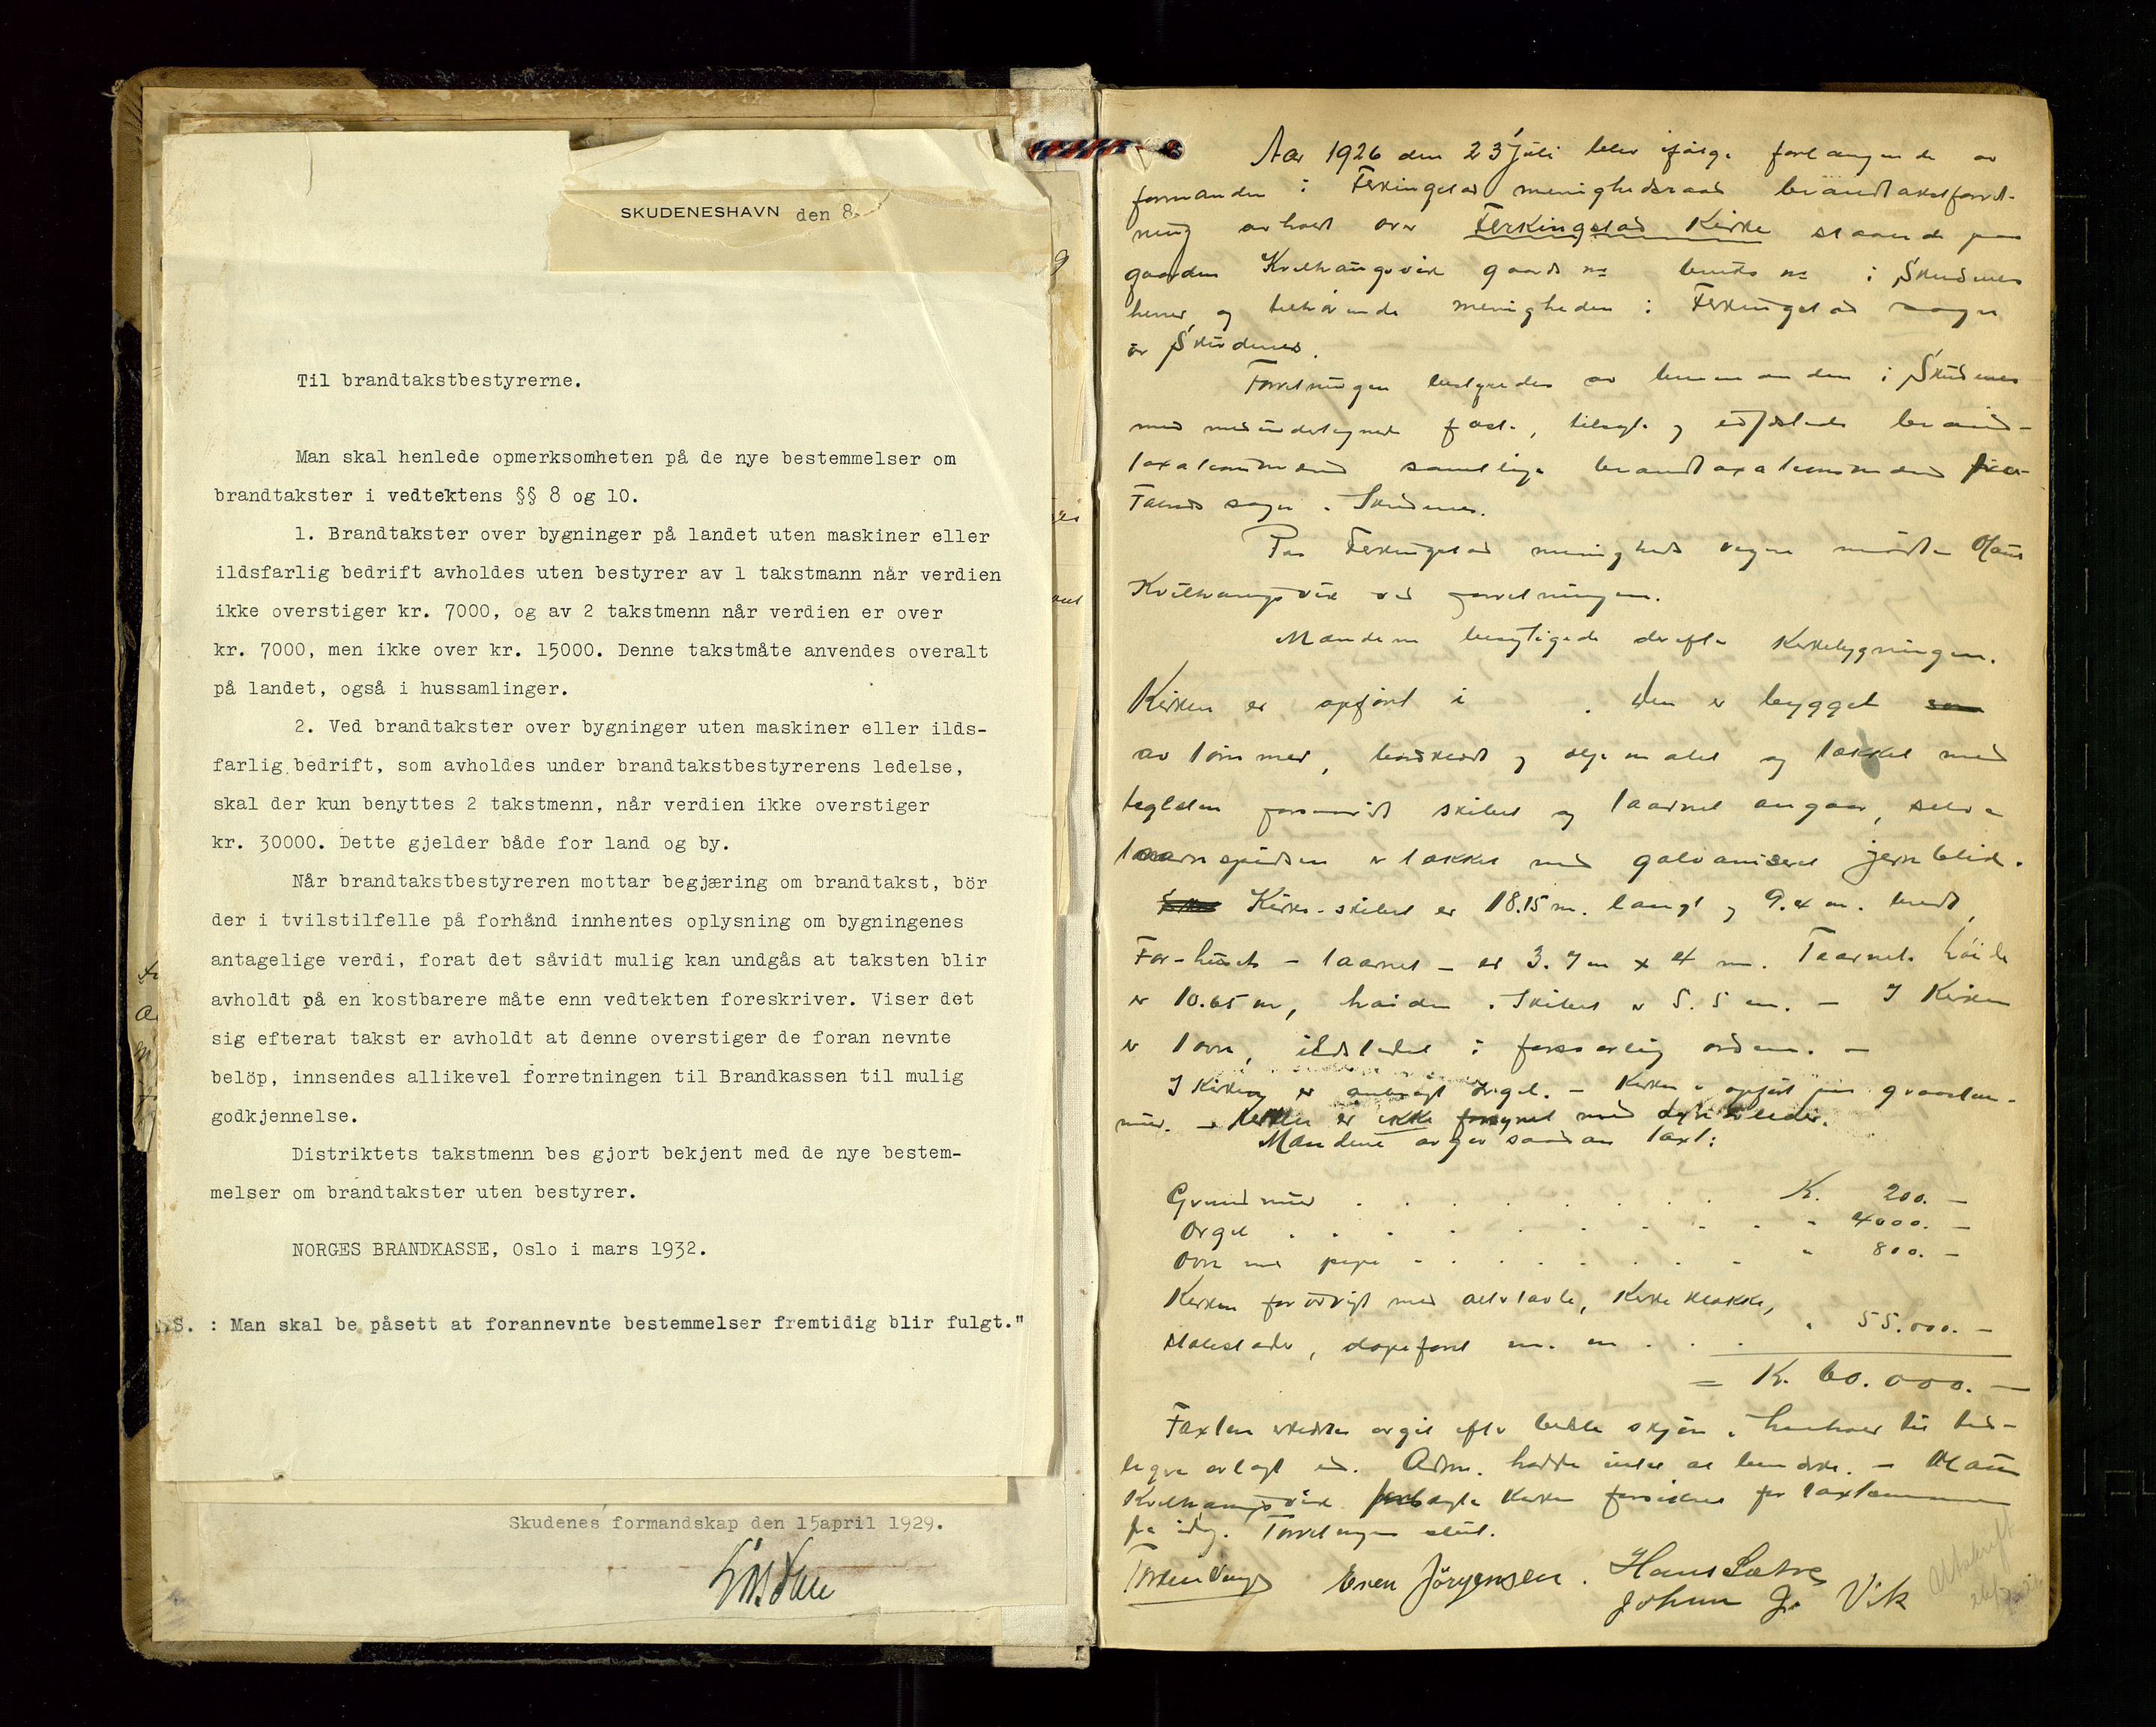 SKUDENESHAVN den 8.
Til brandtakstbestyrerne.
Man skal henlede opmerksomheten på de nye bestemmelser om
brandtakster i vedtektens §§ 8 og 10.
1. Brandtakster over bygninger på landet uten maskiner eller
ildsfarlig bedrift avholdes uten bestyrer av 1 takstmann når verdien
ikke overstiger kr. 7000, og av 2 takstmenn når verdien er over
kr. 7000, men ikke over kr. 15000. Denne takstmåte anvendes overalt
på landet, også i hussamlinger.
2. Ved brandtakster over bygninger uten maskiner eller ilds-
farlig bedrift, som avholdes under brandtakstbestyrerens ledelse,
skal der kun benyttes 2 takstmenn, når verdien ikke overstiger
kr. 30000. Dette gjelder både for land og by.
Når brandtakstbestyreren mottar begjæring om brandtakst, bör
der i tvilstilfelle på forhånd innhentes oplysning om bygningenes
antagelige verdi, forat det såvidt mulig kan undgås at taksten blir
avholdt på en kostbarere måte enn vedtekten foreskriver. Viser det
sig efterat takst er avholdt at denne overstiger de foran nevnte
belöp, innsendes allikevel forretningen til Brandkassen til mulig
godkjennelse.
Distriktets takstmenn bes gjort bekjent med de nye bestem-
melser om brandtakster uten bestyrer.
NORGES BRANDKASSE, Oslo i mars 1932.
S. : Man skal be påsett at forannevnte bestemmelser fremtidig blir fulgt."
Skudenes formandskap den 15april 1929.
Aar 1926 den 23 Juli blev ifølge forlangende av
formanden i Ferkingstad menighedsraad brandtakstforret-
ning avholdt over Ferkingstad Kirke staaende paa
gaarden Kvilhaugsvik gaards no bruks no i Skudenes
herred og tilhørende menigheden i Ferkingstad sogn
av Skudenes.
Forretningen bestyredes av lensmanden i Skudenes
med medundertegnede faste, tilsagte og edfæstede brand-
taxationsmænd samtlige brandtaxationsmænd fra
Falnes sogn i Skudenes.
Paa Ferkingstad menigheds vegne mødte Hans
Kvilhaugsvik ved forretningen.
Mændene besigtigede derefter Kirkebygningen.
Kirken er opført i . Den er bygget som
av tømmer, bordklædt og oljemalet og tækket med
teglsten forsaavidt skibet og taarnet angaar, selve
taarnspidsen er tækket med galvaniseret jernblik.
Kirke-skibet er 18.15 m. langt og 9.4 m. bredt,
For-huset - taarnet - er 3.7 m x 4 m. Taarnets høide
er 10.65 m, høiden i Skibet er 5.5 m. - I Kirken
er 1 ovn, ildstedet i forsvarlig orden. -
I Kirken er anbragt Orgel. - Kirken er opført paa graasten-
mur. - Kirken er ikke forsynet med lynavleder.
Mændene avgav saadan taxt:
Grundmur . . . . . . . . K. 200. -
Orgel . . . . . . . . . " 4000. -
Ovn med pipe . . . . . . . " 800. -
Kirken forøvrigt med altertavle, Kirkeklokke,
stolestader, døpefont m. m. . . " 55.000. -
= K. 60.000. -
Taxten erklæres avgit efter bedste skjøn i henhold til tid-
ligere avlagt ed. Adm. hadde intet at bemerke. - Hans
Kvilhaugsvik forlangte Kirken forsikret for taxtsummen
fra idag. Forretningen slut.
Enen Jörgensen. Hans Sætre
Johan J. Vik
Utskrift